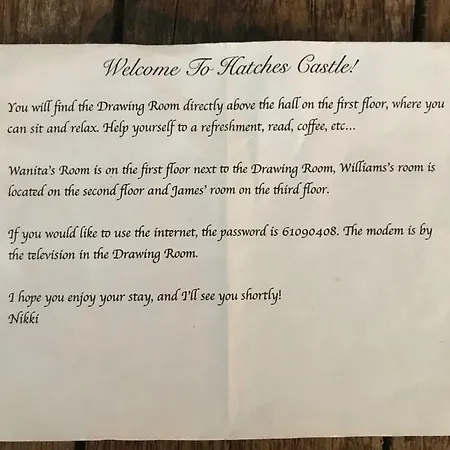 Welcome To Hatches Castle!
You will find the Drawing Room directly above the hall on the first floor, where you
can sit and relax. Help yourself to a refreshment, read, coffee, etc...
Wanita's Room is on the first floor next to the Drawing Room, Williams's room is
located on the second floor and James' room on the third floor.
If you would like to use the internet, the password is 61090408. The modem is by
the television in the Drawing Room.
I hope you enjoy your stay, and I'll see you shortly!
Nikki